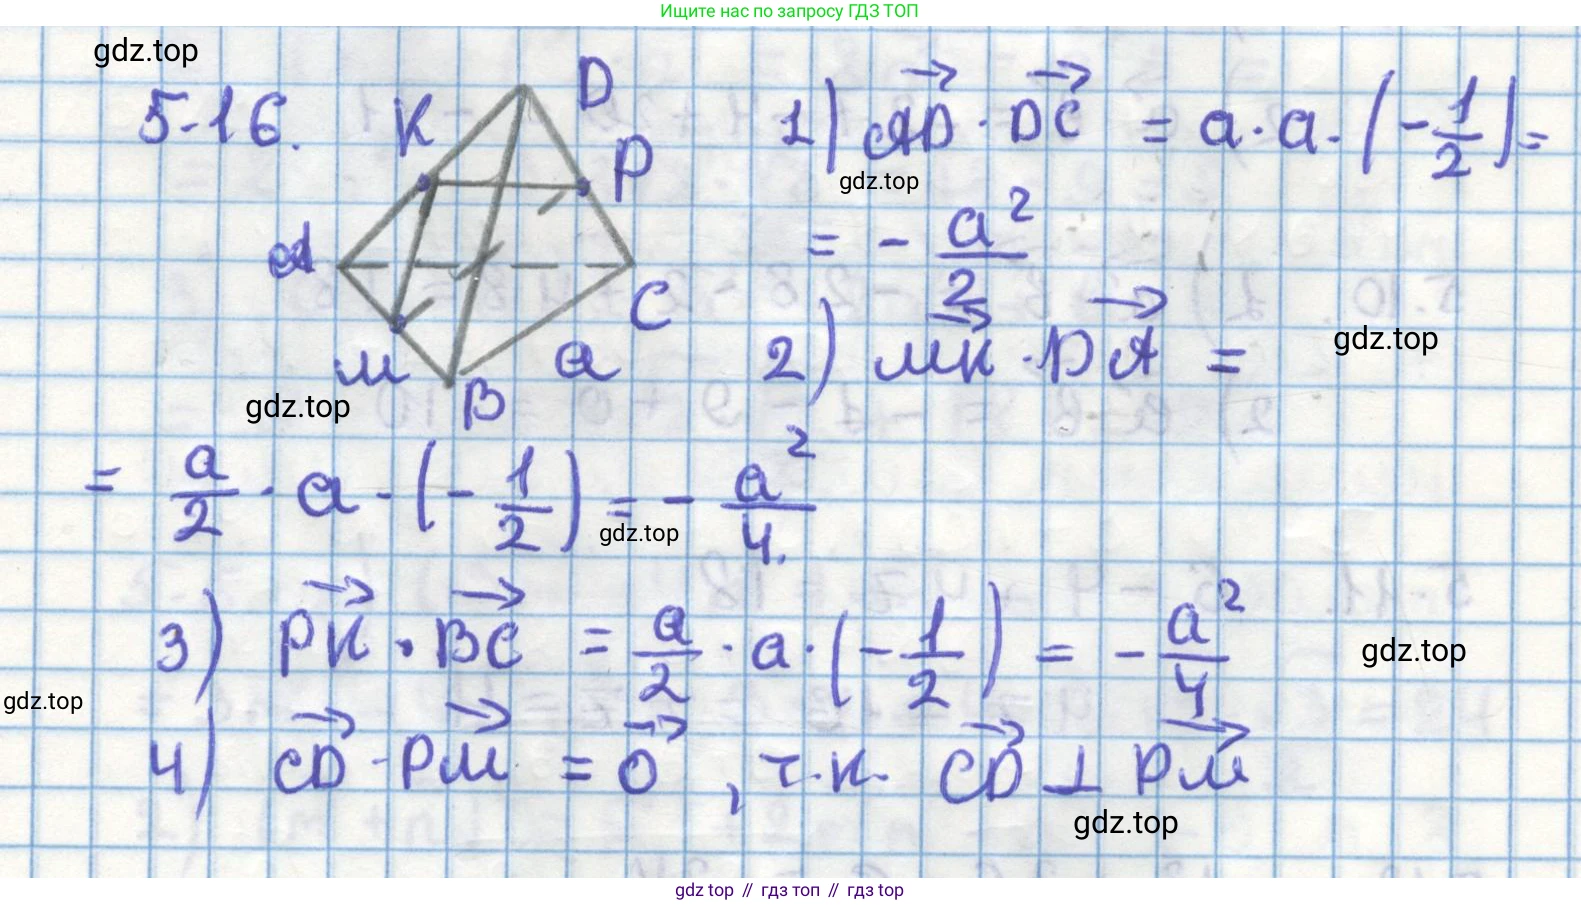 Ищите нас по запросу ГДЗ ТОП
gdz.top
5.16.
K
D
P
A
C
M
B
a
1) AD · DC = a · a · (-1/2) =
gdz.top
= - a²/2
2) MK · DA =
gdz.top
gdz.top
= a/2 · a · (-1/2) = - a²/4.
gdz.top
3) PK · BC = a/2 · a · (-1/2) = - a²/4
gdz.top
gdz.top
4) CD · PM = 0, т.к. CD ⊥ PM
gdz.top
gdz top // гдз топ // гдз top